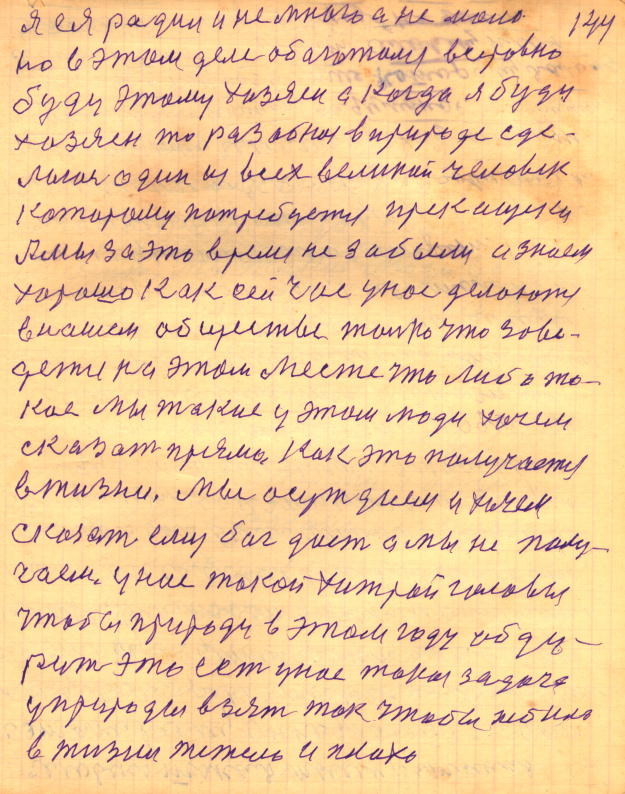 144
я ея родил и немного а не мало
но в этом деле обогатому всеровно
буду этому хозяен а когда я буду
хозяен то разобної в природе сде-
лался один из всех великий человек
которому потребуется
Амы за это время не забыли и знаем
хорошо как сей час унас делоются
внашем обществе только что заве-
дети на этом месте что либо та-
кое мы такие у этом люди хочем
сказат прямо. Как это получается
вжизни. Мы осуждаем и хочем
сказат ему бог даст а мы не полу-
чаем. унас такой хитрой головы
чтобы природу в этом году обду-
рит это ест унас такая задача
уприроды взят так чтобы небыло
в жизни тежело и плохо